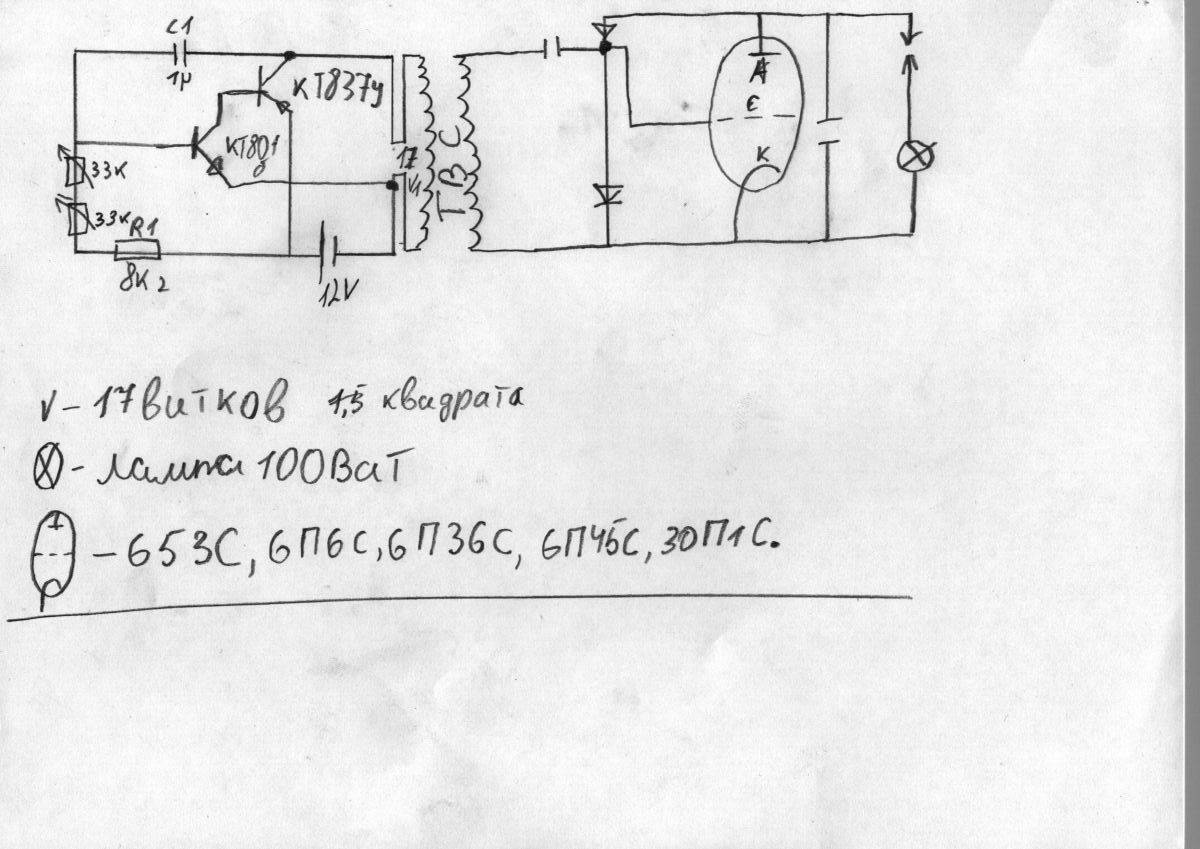 C1
1μ
КТ837у
КТ801
б
33К
33К
R1
8К2
12V
17
V1
ТВС
А
С
К
V – 17 витков 1,5 квадрата
– лампа 100 Ват
– 6S3С, 6П6С, 6П36С, 6П45С, 30П1С.